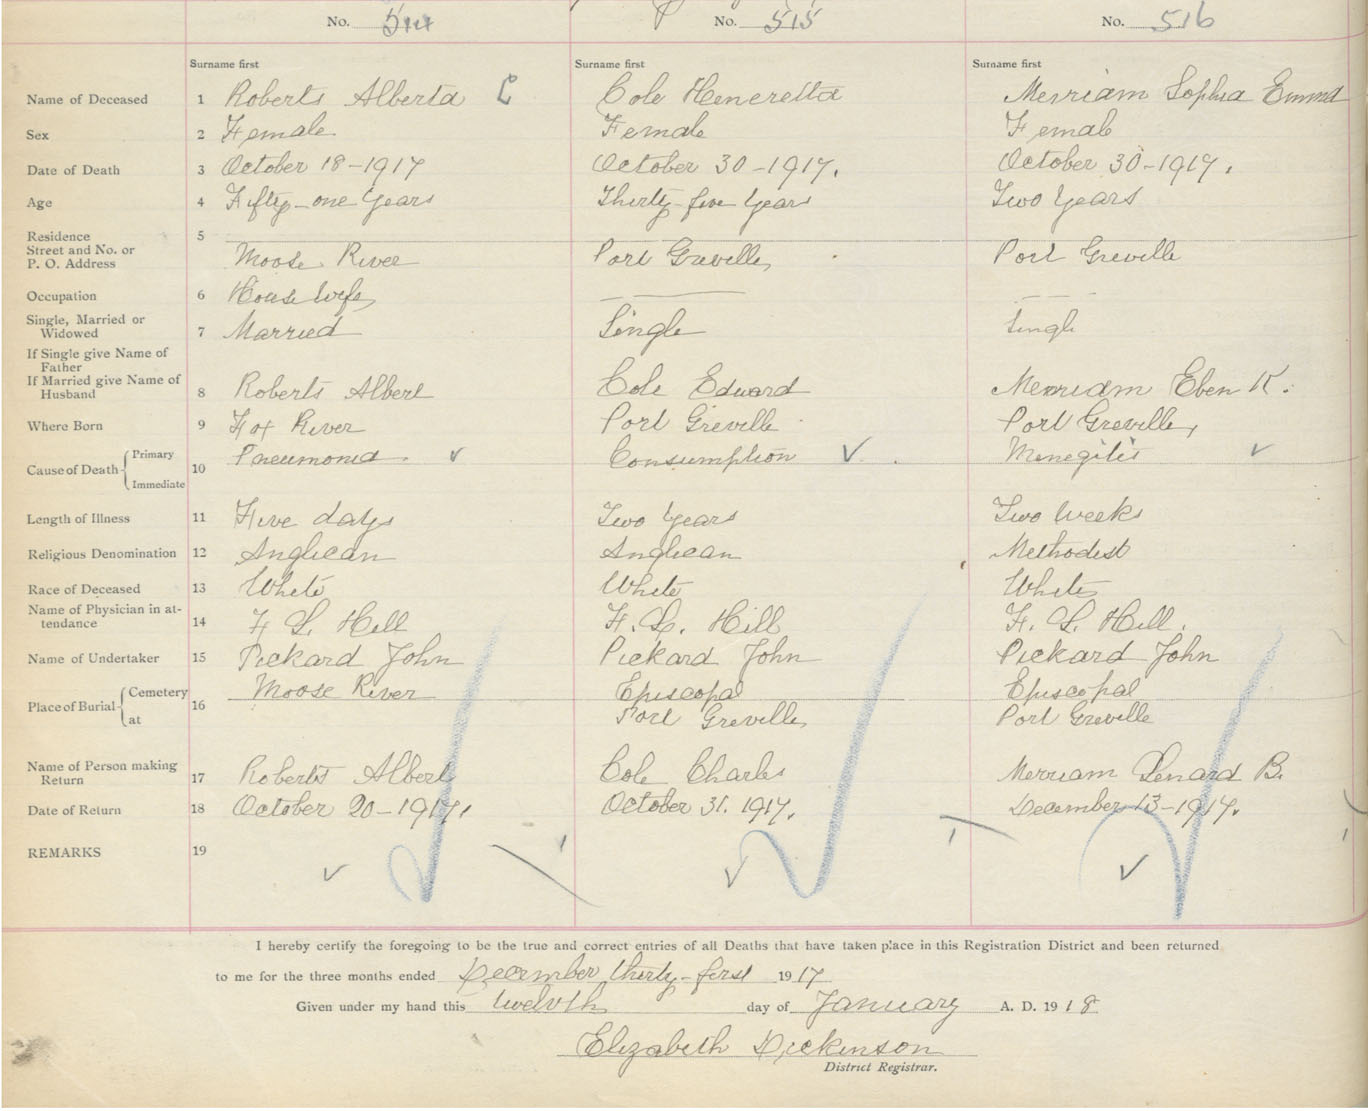 No. 514 No. 515 No. 516
Surname first Surname first Surname first
Name of Deceased 1 Roberts Alberta Cole Heneretta Merriam Sophia Emma
Sex 2 Female Female Female
Date of Death 3 October 18-1917 October 30-1917. October 30-1917.
Age 4 Fifty-one Years Thirty-five Years Two Years
Residence 5
Street and No. or
P. O. Address Moose River Port Greville Port Greville
Occupation 6 House wife
Single, Married or
Widowed 7 Married Single Single
If Single give Name of
Father
If Married give Name of
Husband 8 Roberts Albert Cole Edward Merriam Eben K.
Where Born 9 Fox River Port Greville Port Greville
Cause of Death Primary 10 Pneumonia Consumption Menegitis
Immediate
Length of Illness 11 Five days Two Years Two Weeks
Religious Denomination 12 Anglican Anglican Methodist
Race of Deceased 13 White White White
Name of Physician in at-
tendance 14 F. L. Hill F. L. Hill F. L. Hill.
Name of Undertaker 15 Pickard John Pickard John Pickard John
Place of Burial Cemetery 16 Moose River Episcopal Episcopal
at Port Greville Port Greville
Name of Person making
Return 17 Roberts Albert Cole Charles Merriam Lenard B.
Date of Return 18 October 20-1917. October 31. 1917. December 13-1917.
REMARKS 19
I hereby certify the foregoing to be the true and correct entries of all Deaths that have taken place in this Registration District and been returned
to me for the three months ended December thirty-first 1917
Given under my hand this twelvth day of January A. D. 1918
Elizabeth Dickinson
District Registrar.